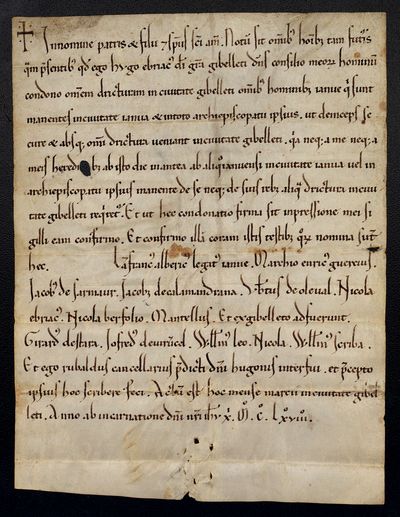 ✝ In nomine patris & filii 7 sp̅s sc̅i am̅. Notu̅ sit omib' hoi̅b' tam futur̅s
qm̅ p̅sentib' qd̕ ego hugo ebriac' di̅ gr̅a gibelleti dn̅s consilio meoꝝ hominu̅
condono omnem drictura̅m in ciuitate gibelleti omib' hominib' ianue q̕ sunt
manentes in ciuitate ianua & in toto archiepiscopatu ipsius. ut deinceps se
cure & absq; omi̅ drictura ueniant in ciuitate gibelleti. q̕a neq; a me neq; a
meis heredib' ab isto die in antea ab aliq̕ ianuensi in ciuitate ianua uel in
archiepiscopatu ipsius manente de se neq; de suis reb; aliq̕ drictura in ciui
tate gibelleti req̕ret'. Et ut hec condonatio firma sit inpressione mei si
gilli eam confirmo. Et confirmo illa̅ coram istis testib; qoꝝ nomina sut̅
hec. Lafranc' alberic' legat' ianue. Marchio enric' guercius.
Iacob' de sarmaur. Iacob; de calamandrana. Vb̅tus de oleual. Nicola
ebriac'. Nicola berfolio. Mantellus. Et ex gibelleto adfuerunt.
Girard' de stara. Iofred' de uruced. Will̅m' leo. Nicola. Will̅m' scriba.
Et ego rubaldus cancellarius p̅dicti dn̅i hugonis interfui. et p̅cepto
ipsius hoc scribere feci. Actu̅ est hoc mense marcii in ciuitate gibel
leti. Anno ab incarnatione dn̅i nr̅i ih̅u x̅. M̊. C̊. Lxviii.